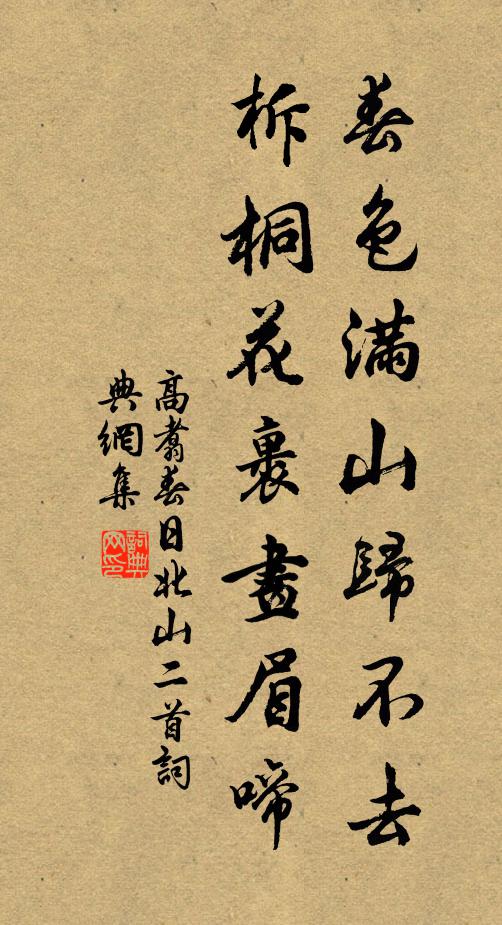 春色滿山歸不去
柝桐花裏畫眉啼
高翥春日北山二首詞
典網集
詞典
網印